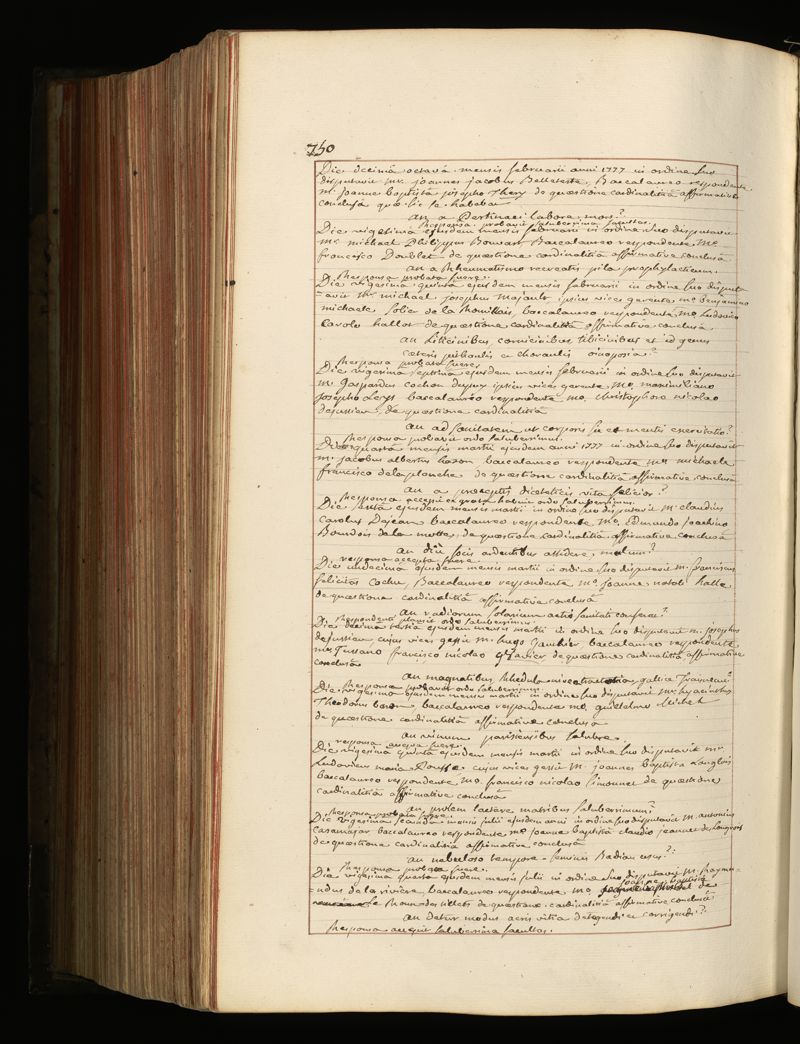 750
Die decimâ octavâ mensis februarii anni 1777 in ordine suo
disputavit Mr. joannes jacobus Belleteste, Baccalaureo respondente
M. Joanne Baptistâ josepho Thery de quæstione cardinalitiâ affirmative
conclusâ quæ sic se habebat
an a Pertinaci labore mors?
Responsa probavit saluberrima facultas.
Die vigesimâ ejusdem mensis februarii in ordine suo disputavit
Mr. michael Philippus Bouvart Baccalaureo respondente Mo.
francisco Doublet de quæstione cardinalitiâ affirmative conclusâ
an a Rheumatismo recreatis pila prophylacticum.
Responsa probata fuere.
Die vigesima quinta ejusdem mensis februarii in ordine suo disput
avit Mr. michael josephus Majault ipsius vices gerente Mo. Benjamino
michaele Solier de la Romillais, baccalaureo respondente Mo. Ludovico
Carolo hallot de quæstione cardinalitiâ affirmative conclusâ
an liticinibus, cornicinibus tibicinibus et id genus
cæteris pithaulis a choraulis oinoposia?
Responsa probata fuere
Die vigesima septima ejusdem mensis februarii in ordine suo disputavit
M. Gaspardus Cochon Dupuy ipsius vices gerente Mo. maximiliano
Josepho Leys baccalaureo respondente Mo. christophoro nicolao
dejussieu, de quæstione cardinalitiâ
an ad sanitatem ut corporis sic et mentis exercitatio?
Responsa probavit ordo saluberrimus.
Die quartâ mensis martii ejusdem anni 1777 in ordine suo disputavit
M. jacobus albertus hazon baccalaureo respondente Mo. michaele
francisco delaplanche de quæstione cardinalitiâ affirmative conclusâ
an a præceptis diæteticis vita felicior?
Responsa accepit et grata habuit ordo saluberrimus.
Die sextâ ejusdem mensis martii in ordine suo disputavit M. claudius
Carolus Dejean baccalaureo respondente Mo. Edmundo Joachino
Bourdois de la motte, de quæstione cardinalitiâ affirmative conclusâ
an diù focis ardentibus assidere, malum?
responsa accepta fuere.
Die undecimâ ejusdem mensis martii in ordine suo disputavit M. franciscus
felicitas Cochu, Baccalaureo respondente Mo. Joanne natali hallé
de quæstione cardinalitiâ affirmative conclusâ
an radiorum solarium actio sanitati conferat?
Respondenti plausit ordo saluberrimus.
Die decimâ tertiâ ejusdem mensis martii in ordine suo disputavit M. josephus
dejussieu cujus vices gessit M. hugo Gauthier, baccalaureo respondente
Mo. Tussano francisco nicolao de quæstione cardinalitiâ affirmative
conclusâ
an magnatibus Rhedula gallicè Traineau?
Responsa probavit ordo saluberrimus.
Die vigesima ejusdem mensis martii in ordine suo disputavit Mr. hyacinthus
Theodorus baron, baccalaureo respondente Mo. guillelmo
de quæstione cardinalitiâ affirmative conclusa
an vinum parisiensibus salubre.
responsa accepta fuere.
Die vigesimâ quintâ ejusdem mensis martii in ordine suo disputavit Mr.
Ludovicus maria Pousse cujus vices gessit M. joannes Baptista Langlois
baccalaureo respondente Mo. francisco nicolao Simonnet de quæstione
cardinalitiâ affirmative conclusâ
an prolem lactare matribus saluberrimum?
Responsa probata fuere.
Die vigesima secunda mensis julii ejusdem anni in ordine suo disputavit M. antonius
Casamajor baccalaureo respondente Mo. Joanne baptistâ claudio jeannet des longrois
de quæstione cardinalitia affirmativè conclusâ
an nebuloso tempore
Responsa probata fuere.
Die vigesima quarta ejusdem mensis julii in ordine suo disputavit M. Raymu-
ndus de la riviere, baccalaureo respondente Mo. joanne baptista de
de quæstione cardinalitiâ affirmative conclusâ
an detur modus aeris vitia detegendi et corrigendi?
Responsa accepit saluberrima facultas.